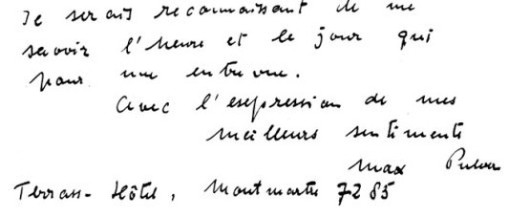 Je serais reconnaissant de me
savoir l'heure et le jour qui
pour une entrevue.
Avec l'expression de mes
meilleurs sentiments
Max Pulver
Terrass-Hôtel, Montmartre 72 85